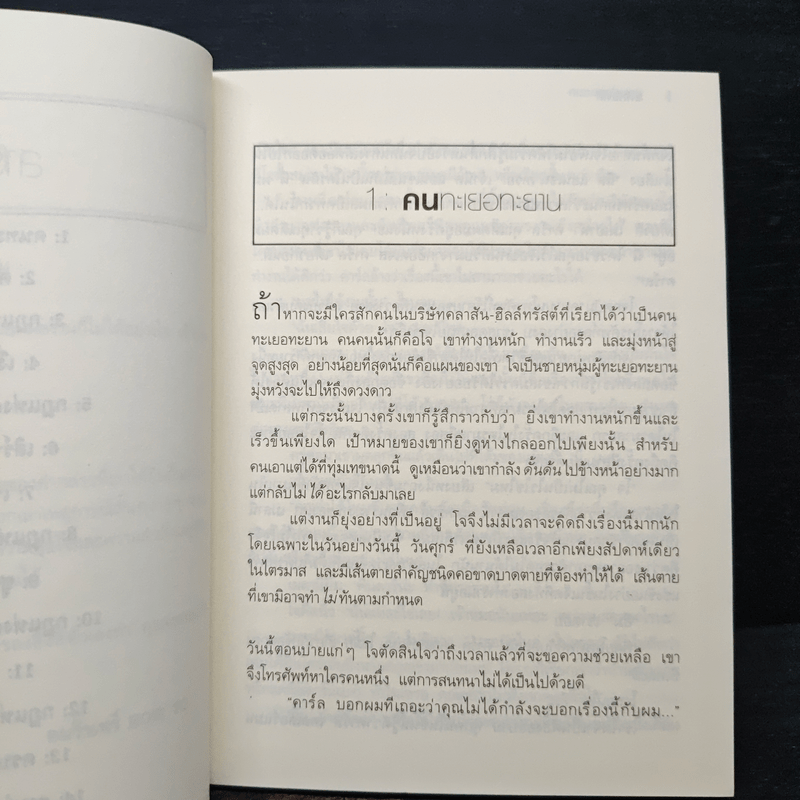 1 : คนทะเยอทะยาน
ถ้าหากจะมีใครสักคนในบริษัทคลาสัน-ฮิลล์ทรัสต์ที่เรียกได้ว่าเป็นคน
ทะเยอทะยาน คนคนนั้นก็คือโจ เขาทำงานหนัก ทำงานเร็ว และมุ่งหน้าสู่
จุดสูงสุด อย่างน้อยที่สุดนั่นก็คือแผนของเขา โจเป็นชายหนุ่มผู้ทะเยอทะยาน
มุ่งหวังจะไปให้ถึงดวงดาว
แต่กระนั้นบางครั้งเขาก็รู้สึกราวกับว่า ยิ่งเขาทำงานหนักขึ้นและ
เร็วขึ้นเพียงใด เป้าหมายของเขาก็ยิ่งดูห่างไกลออกไปเพียงนั้น สำหรับ
คนเอาแต่ได้ที่ทุ่มเทขนาดนี้ ดูเหมือนว่าเขากำลังดั้นด้นไปข้างหน้าอย่างมาก
แต่กลับไม่ได้อะไรกลับมาเลย
แต่งานก็ยุ่งอย่างที่เป็นอยู่ โจจึงไม่มีเวลาจะคิดถึงเรื่องนี้มากนัก
โดยเฉพาะในวันอย่างวันนี้ วันศุกร์ ที่ยังเหลือเวลาอีกเพียงสัปดาห์เดียว
ในไตรมาส และมีเส้นตายสำคัญชนิดคอขาดบาดตายที่ต้องทำให้ได้ เส้นตาย
ที่เขามิอาจทำไม่ทันตามกำหนด
วันนี้ตอนบ่ายแก่ๆ โจตัดสินใจว่าถึงเวลาแล้วที่จะขอความช่วยเหลือ เขา
จึงโทรศัพท์หาใครคนหนึ่ง แต่การสนทนาไม่ได้เป็นไปด้วยดี
“คาร์ล บอกผมทีเถอะว่าคุณไม่ได้กำลังจะบอกเรื่องนี้กับผม...”